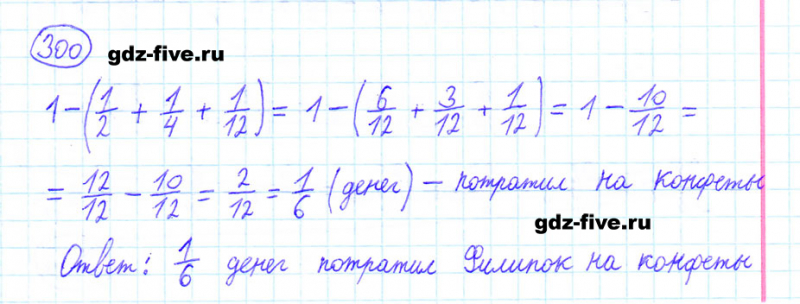 300
gdz-five.ru
1 - (1/2 + 1/4 + 1/12) = 1 - (6/12 + 3/12 + 1/12) = 1 - 10/12 =
= 12/12 - 10/12 = 2/12 = 1/6 (денег) - потратил на конфеты
gdz-five.ru
Ответ: 1/6 денег потратил Филипок на конфеты